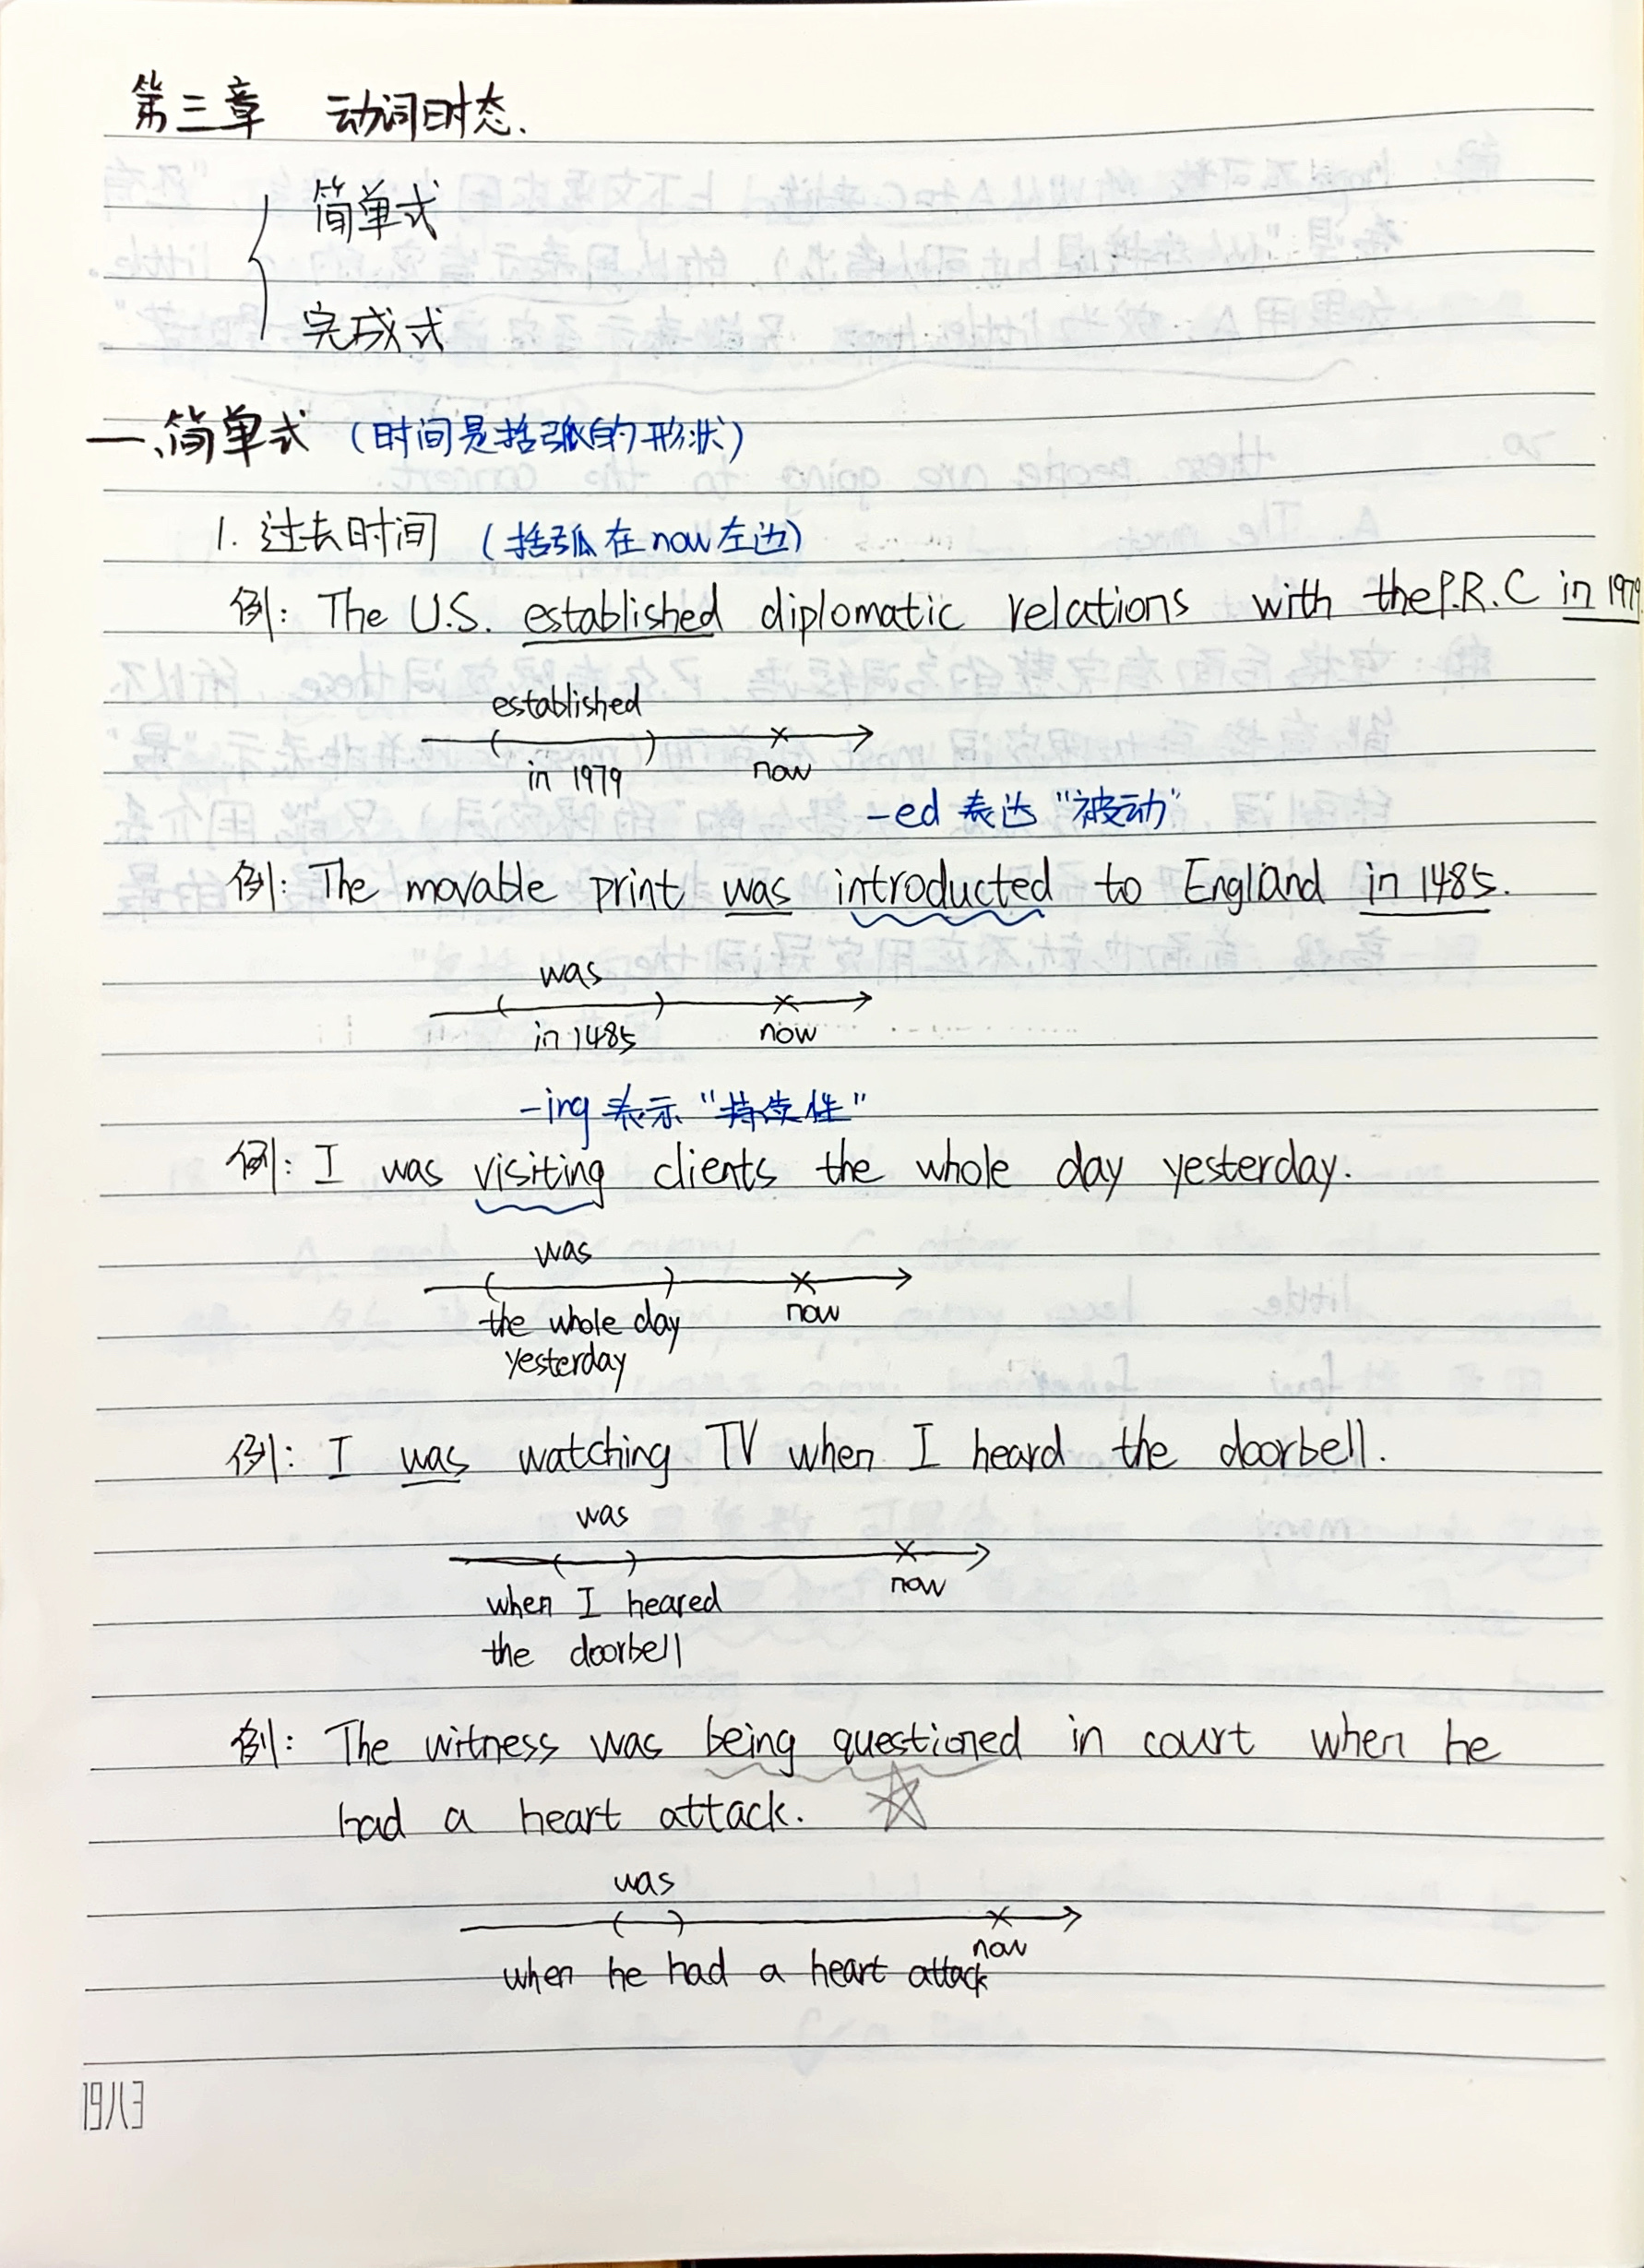 第三章 动词时态.
简单式
完成式
一、简单式 (时间是括弧的形状)
1. 过去时间 (括弧在now左边)
例: The U.S. established diplomatic relations with the P.R.C in 1979
established
in 1979 now
-ed 表达 "被动"
例: The movable print was introducted to England in 1485.
was
in 1485 now
-ing 表示 "持续性"
例: I was visiting clients the whole day yesterday.
was
the whole day now
yesterday
例: I was watching TV when I heard the doorbell.
was
when I heared now
the doorbell
例: The witness was being questioned in court when he
had a heart attack.
was
now
when he had a heart attack